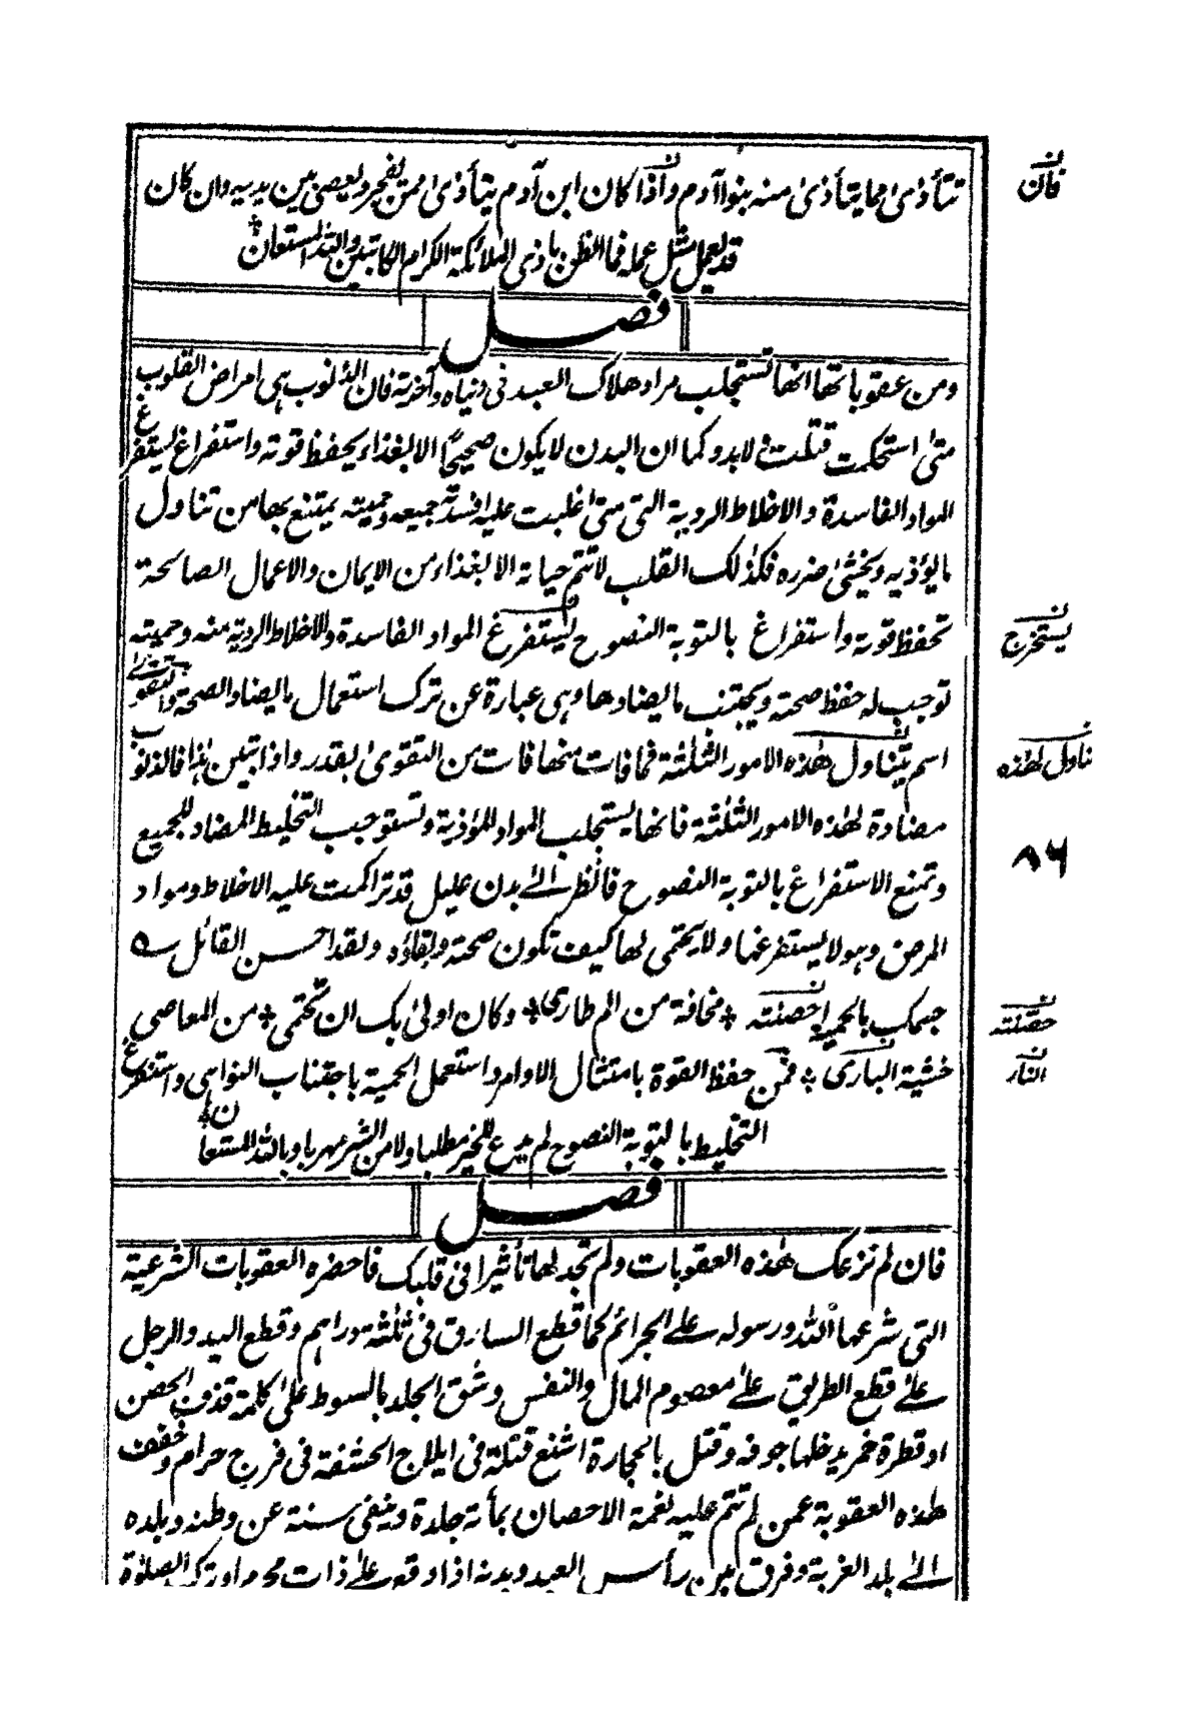 تتأذى مما يتأذى منه بنوا آدم واذا كان ابن آدم يتأذى ممن يفجر ويعصي بين يديه وان كان
قد يعمل مثل عمله فما الظن باذى الملائكة الكرام الكاتبين والله المستعان
فصل
ومن عقوباتها انها تستجلب مواد هلاك العبد في دنياه وآخرته فان الذنوب هي امراض القلوب
متى استحكمت قتلت ولا بد وكما ان البدن لا يكون صحيحا الا بغذاء يحفظ قوته واستفراغ يستفرغ
المواد الفاسدة والاخلاط الردية التي متى غلبت عليه افسدته جميعه وحمية يمتنع بها من تناول
ما يؤذيه ويخشى ضرره فكذلك القلب لا تتم حياته الا بغذاء من الايمان والاعمال الصالحة
تحفظ قوته واستفراغ بالتوبة النصوح يستفرغ المواد الفاسدة والاخلاط الردية منه وحمية
توجب له حفظ صحته ويجتنب ما يضادها وهي عبارة عن ترك استعمال ما يضاد الصحة والتقوى
اسم يتناول هذه الامور الثلثة فما فات منها فات من التقوى بقدره واذا تبين هذا فالذنوب
مضادة لهذه الامور الثلثة فانها يستجلب المواد المؤذية وتستوجب التخليط المضاد للجميع
وتمنع الاستفراغ بالتوبة النصوح فانظر الى بدن عليل قد تراكمت عليه الاخلاط ومواد
المرض وهو لا يستفرغها ولا يحتمى لها كيف تكون صحته وبقاؤه ولقد احسن القائل
جسمك بالحمية احصنته * مخافة من الم طارى * وكان اولى بك ان تحتمى * من المعاصي
خشية البارى * فمن حفظ القوة بامتثال الاوامر واستعمل الحمية باجتناب النواهي واستفرغ
التخليط بالتوبة النصوح لم يدع للخير مطلبا ولا من الشر مهربا وبالله المستعان
فصل
فان لم تزعك هذه العقوبات ولم تجد لها تأثيرا في قلبك فاحضره العقوبات الشرعية
التي شرعها الله ورسوله على الجرائم كما قطع السارق في ثلثة دراهم وقطع اليد والرجل
على قطع الطريق على معصوم المال والنفس وشق الجلد بالسوط على كلمة قذف المحصن
او قطرة خمر يدخلها جوفه وقتل بالحجارة اشنع قتلة في ايلاج الحشفة في فرج حرام وخفف
هذه العقوبة عمن لم تتم عليه نعمة الاحصان بمأة جلدة وينفى سنة عن وطنه وبلده
الى بلد الغربة وفرق بين رأس العبد وبدنه اذا وقع على ذات محرم او ترك الصلوة
ن
فان
ن
يستخرج
ن
تناول لهذه
٨٦
ن
حصنته
ن
النار